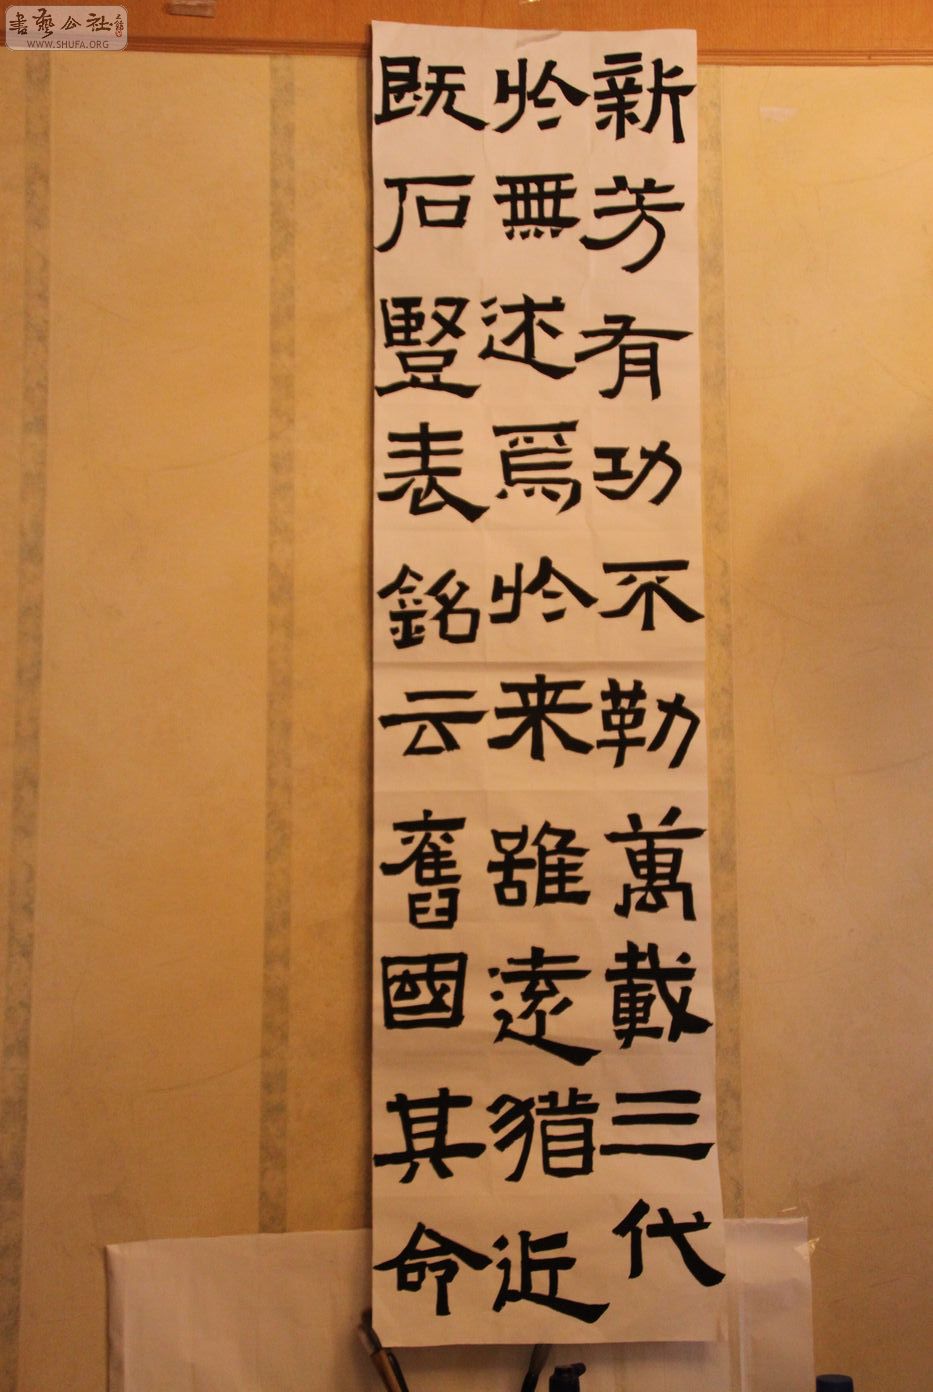 書藝公社
WWW.SHUFA.ORG
新芳有功不勒萬載三代
於無述焉於来雖遠猶近
既石豎表銘云舊國其命